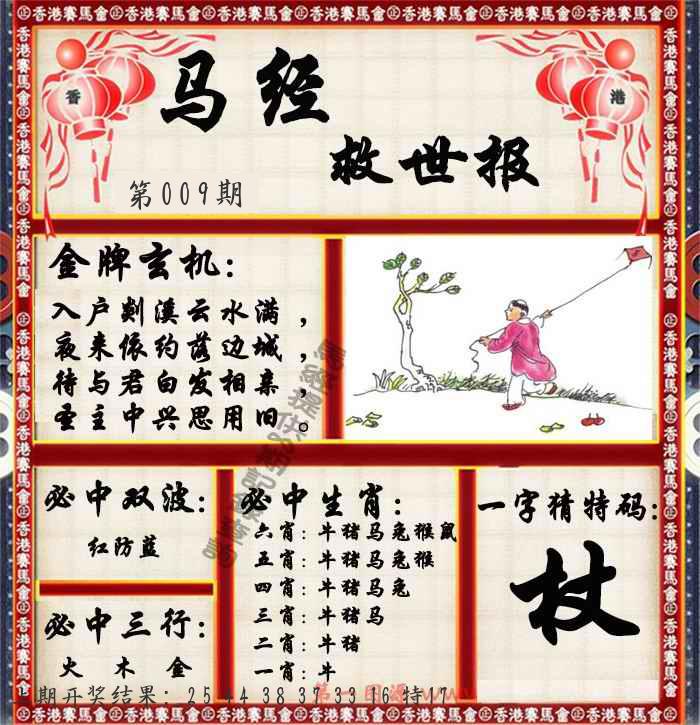 香港賽馬會
香 港
马经
救世报
第009期
金牌玄机:
入户剡溪云水满，
夜来依约落边城，
待与君向发相亲，
圣主中兴思用旧。
必中双波:
红防蓝
必中三行:
火 木 金
必中生肖:
六肖:牛猪马兔猴鼠
五肖:牛猪马兔猴
四肖:牛猪马兔
三肖:牛猪马
二肖:牛猪
一肖:牛
一字猜特码:
杖
期开奖结果: 25 44 38 37 33 16 特
第一图源